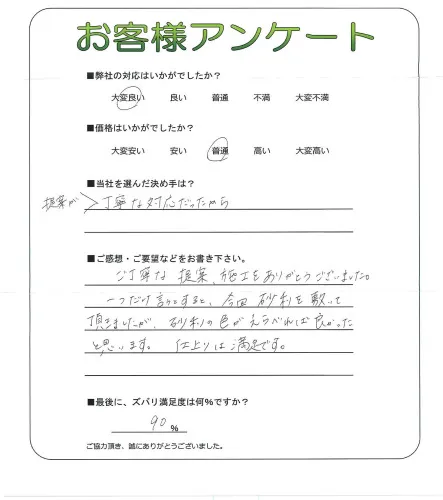 お客様アンケート
■弊社の対応はいかがでしたか？
大変良い 良い 普通 不満 大変不満
■価格はいかがでしたか？
大変安い 安い 普通 高い 大変高い
■当社を選んだ決め手は？
提案が
丁寧な対応だったから
■ご感想・ご要望などをお書き下さい。
ご丁寧な提案、施工をありがとうございました。
一つだけ言うとすると、今回砂利を敷いて
頂きましたが、砂利の色がえらべれば良かった
と思います。 仕上りは満足です。
■最後に、ズバリ満足度は何％ですか？
90 %
ご協力頂き、誠にありがとうございました。